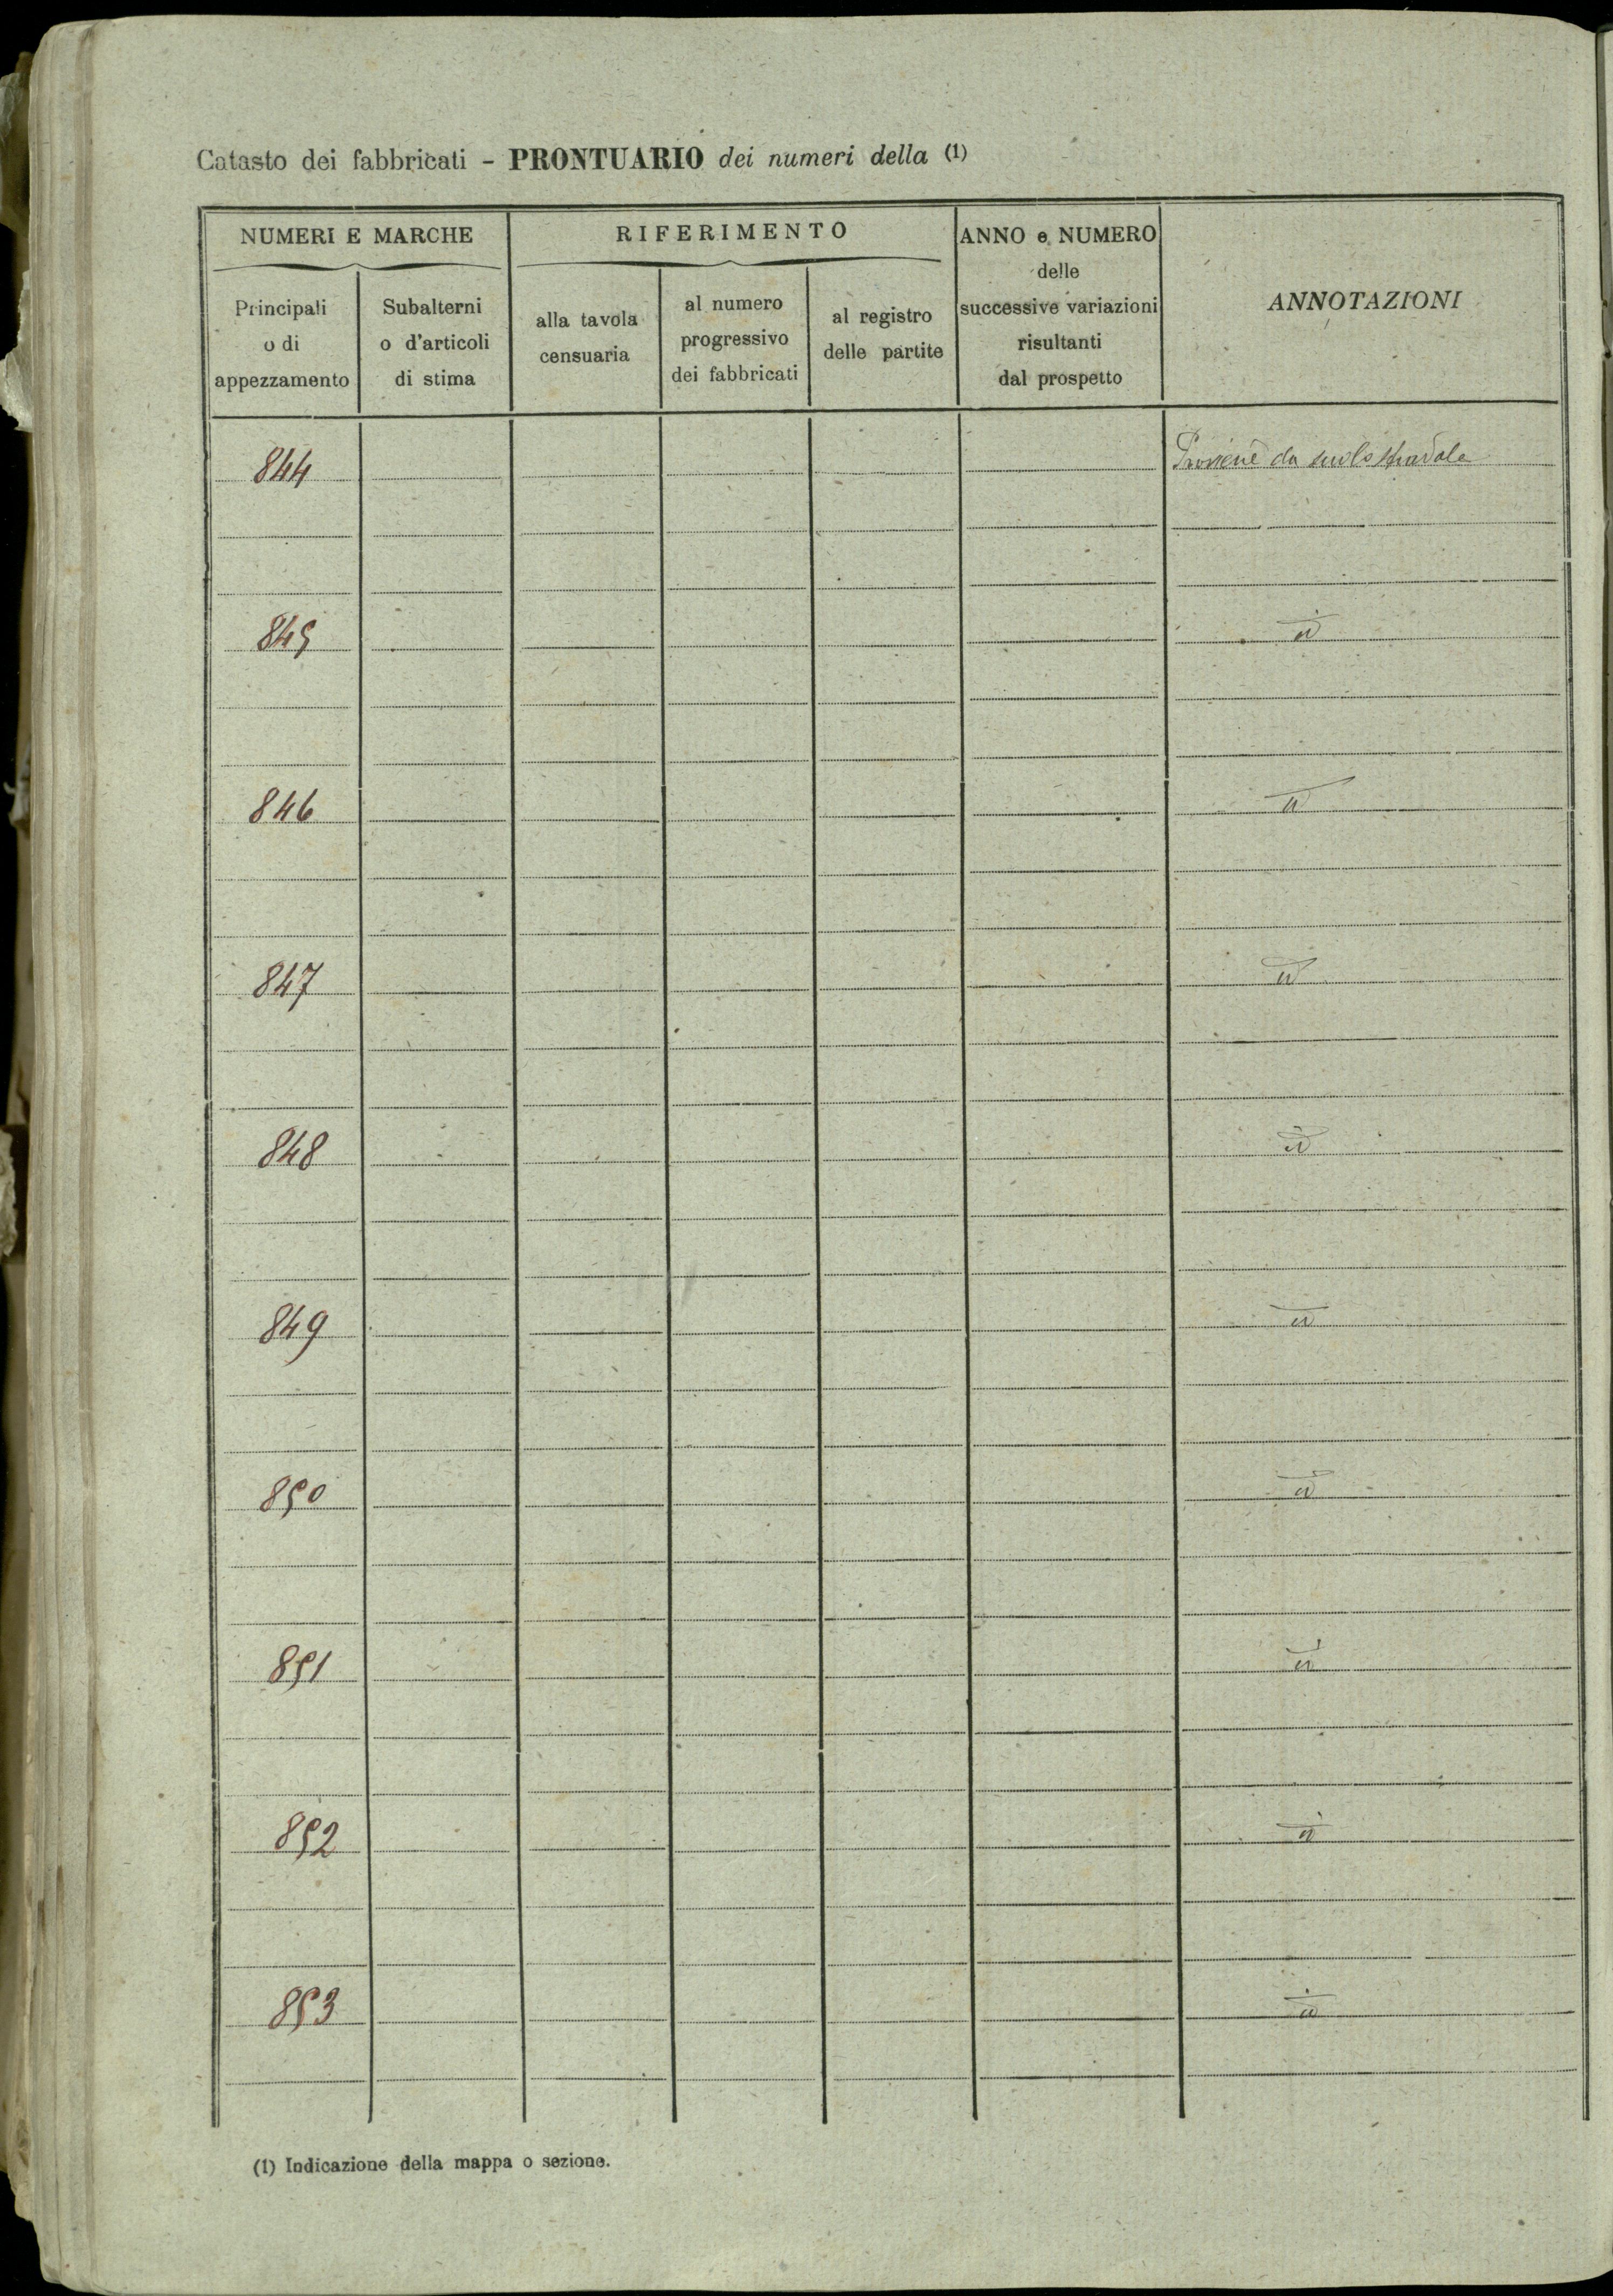 Catasto dei fabbricati - PRONTUARIO dei numeri della (1)
NUMERI E MARCHE
RIFERIMENTO
ANNO e NUMERO
delle
successive variazioni
risultanti
dal prospetto
ANNOTAZIONI
Principali
o di
appezzamento
Subalterni
o d'articoli
di stima
alla tavola
censuaria
al numero
progressivo
dei fabbricati
al registro
delle partite
844 Proviene da suolo stradale
845 id
846 id
847 id
848 id
849 id
850 id
851 id
852 id
853 id
(1) Indicazione della mappa o sezione.